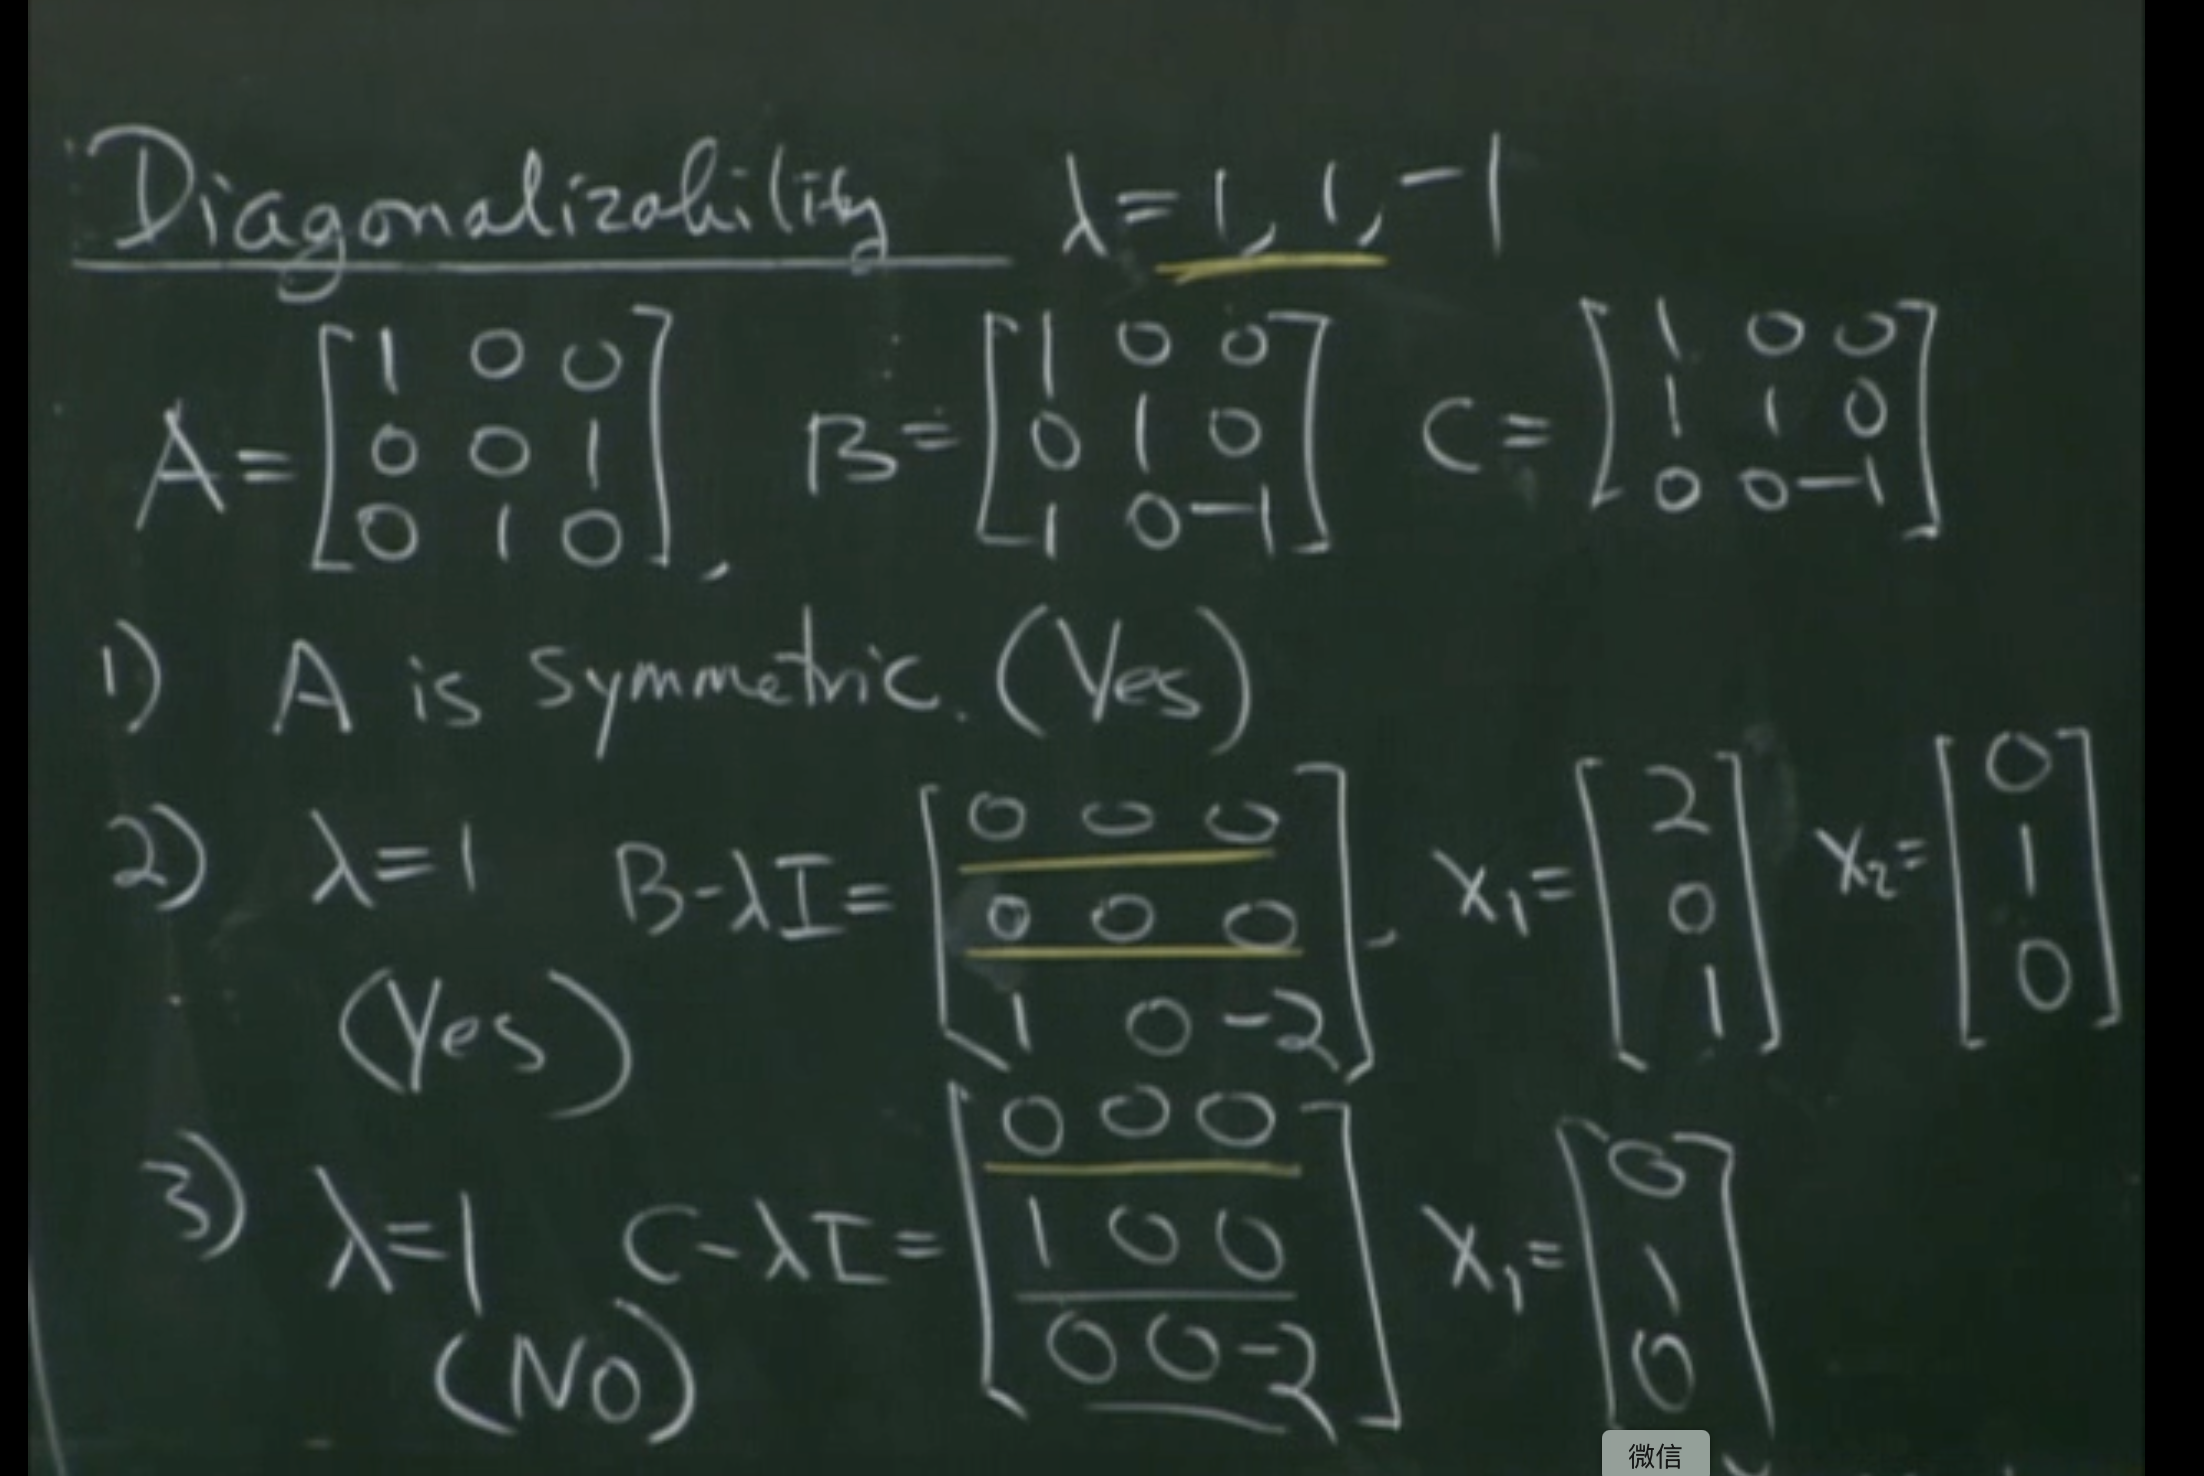 Diagonalizability λ = 1, 1, -1
A = [1 0 0; 0 0 1; 0 1 0], B = [1 0 0; 0 1 0; 1 0 -1] C = [1 0 0; 1 1 0; 0 0 -1]
1) A is symmetric. (Yes)
2) λ = 1 B - λI = [0 0 0; 0 0 0; 1 0 -2]. x₁ = [2; 0; 1] x₂ = [0; 1; 0]
(Yes)
3) λ = 1 C - λI = [0 0 0; 1 0 0; 0 0 -2] x₁ = [0; 1; 0]
(NO)
微信